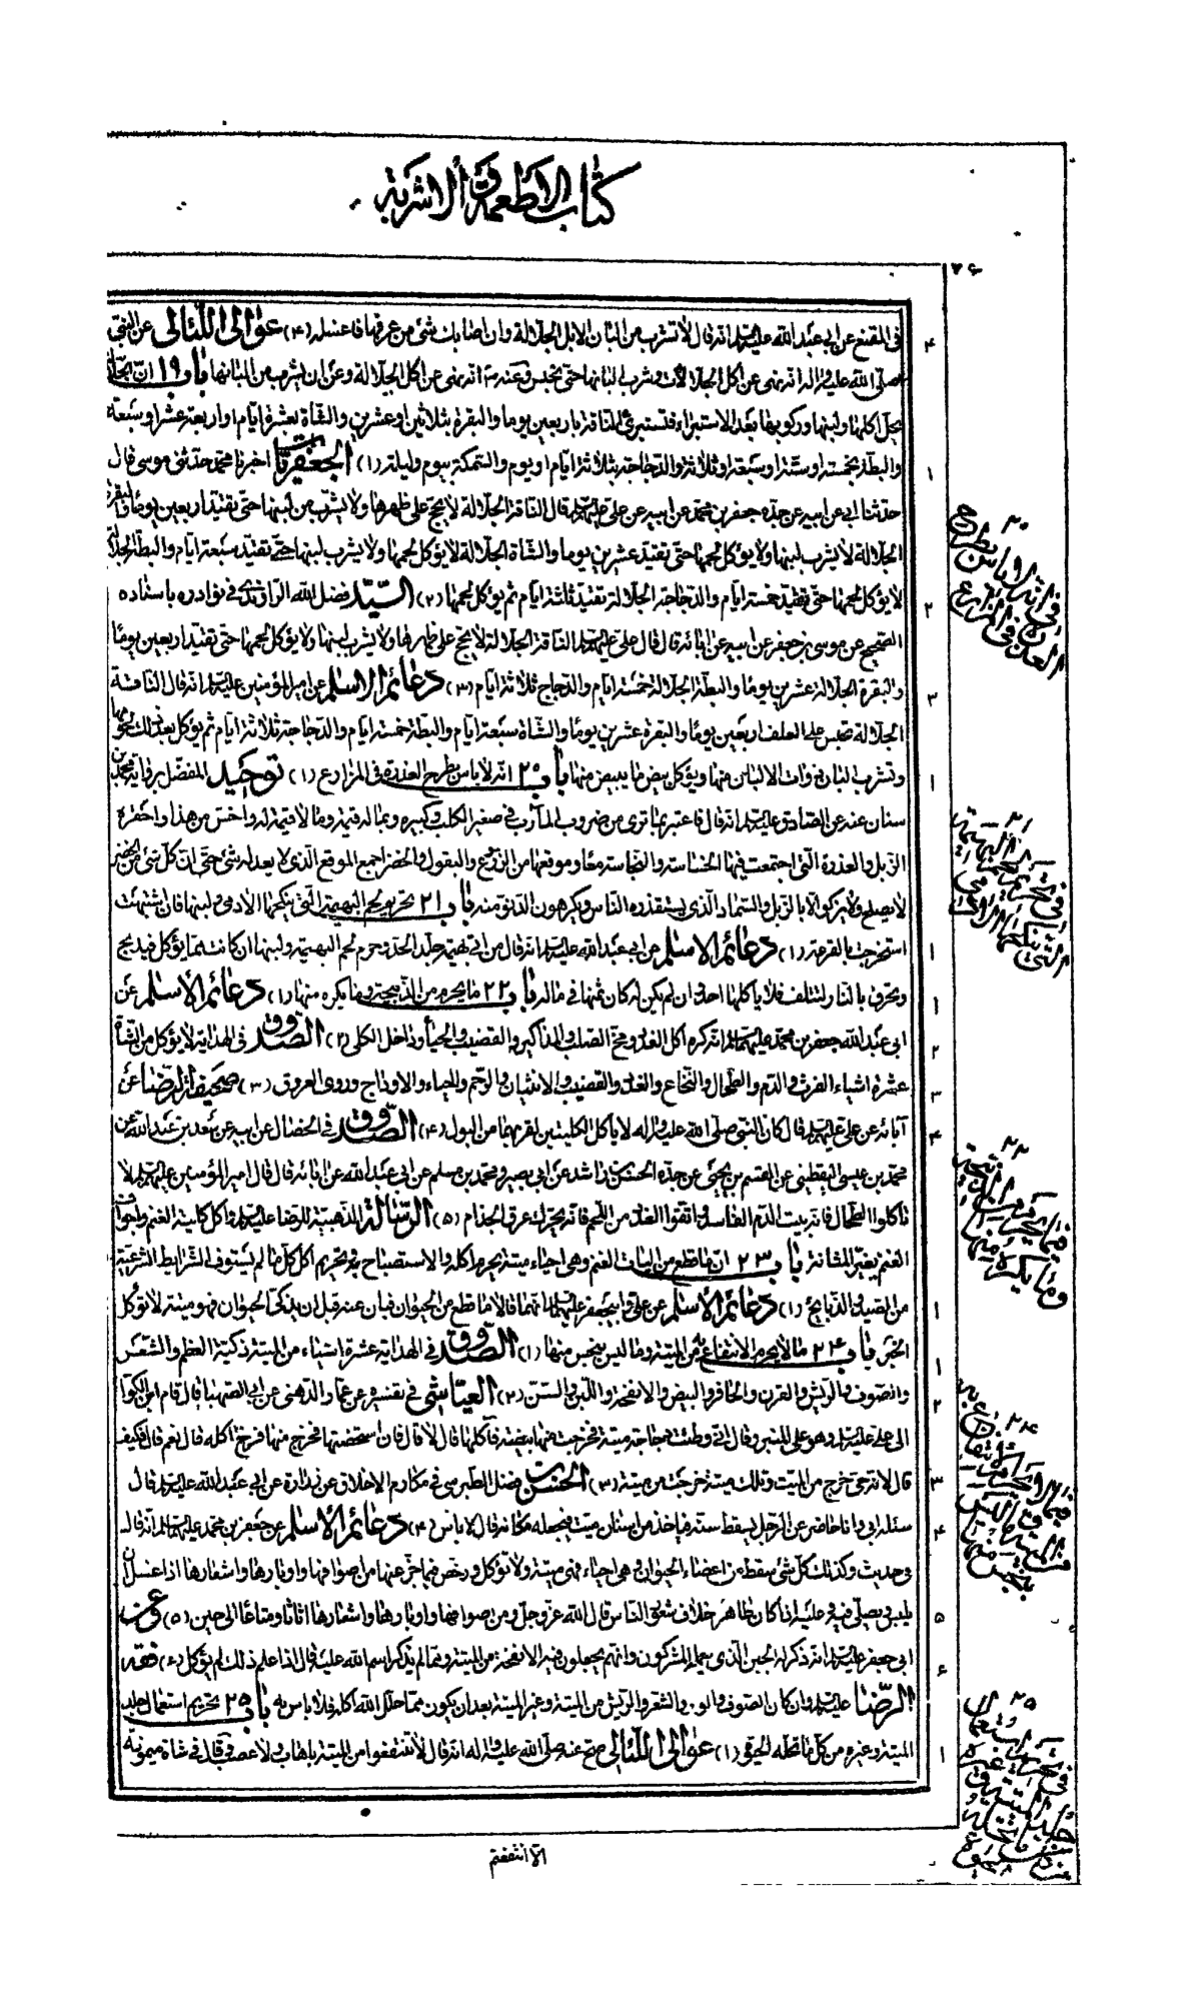 كتاب الاطعمة والاشربة
٧٦
فى المقنع عن ابى عبد الله عليه السلام انه قال لا تشرب من البان الابل الجلالة وان اصابك شئ من عرقها فاغسله (٤) عوالى اللئالى عن النبى
صلى الله عليه واله انه نهى عن اكل الجلالات وشرب البانها حتى تحبس وعنه انه نهى عن اكل الجلالة وعن ان يشرب من البانها باب ١٩ ان الجلال
يحل اكلها ولبنها وركوبها بعد الاستبراء فتستبرئ الناقة باربعين يوما والبقرة بثلاثين او عشرين والشاة بعشرة ايام او اربعة عشر او سبعة
والبطة بخمسة او ستة او سبعة او ثلاثة والدجاجة بثلاثة ايام او يوم والسمكة بيوم وليلة (١) الجعفريات اخبرنا محمد حدثنى موسى قال
حدثنا ابى عن ابيه عن جده جعفر بن محمد عن ابيه عن على عليه السلام قال الناقة الجلالة لا يحج على ظهرها ولا يشرب من لبنها حتى تقيد اربعين يوما والبقرة
الجلالة لا يشرب لبنها ولا يؤكل لحمها حتى تقيد عشرين يوما والشاة الجلالة لا يؤكل لحمها ولا يشرب لبنها حتى تقيد سبعة ايام والبطة الجلالة
لا يؤكل لحمها حتى تقيد خمسة ايام والدجاجة الجلالة تقيد ثلاثة ايام ثم يؤكل لحمها (٢) السيد فضل الله الراوندى فى نوادره باسناده
الصحيح عن موسى بن جعفر عن ابيه عن ابائه قال قال على عليه السلام الناقة الجلالة لا يحج على ظهرها ولا يشرب لبنها ولا يؤكل لحمها حتى تقيد اربعين يوما
والبقرة الجلالة عشرين يوما والبطة الجلالة خمسة ايام والدجاج ثلاثة ايام (٣) دعائم الاسلام عن امير المؤمنين عليه السلام انه قال الناقة
الجلالة تحبس على العلف اربعين يوما والبقرة عشرين يوما والشاة سبعة ايام والبطة خمسة ايام والدجاجة ثلاثة ايام ثم يؤكل بعد ذلك لحومها
وتشرب البان ذوات الالبان منها ويؤكل بيض ما يبيض منها باب ٢٠ انه لا باس بطرح العذرة فى المزارع (١) توحيد المفضل برواية محمد بن
سنان عنه عن الصادق عليه السلام انه قال فاعتبر بما ترى من ضروب المآرب فى صغير الخلق وكبيره وبما له قيمة وما لا قيمة له واخس من هذا واحقره
الزبل والعذرة التى اجتمعت فيها الخساسة والنجاسة معا وموقعها من الزرع والبقول والخضر اجمع الموقع الذى لا يعدله شئ حتى ان كل شئ من الخضر
لا يصلح ولا يزكو الا بالزبل والسماد الذى يستقذره الناس ويكرهون الدنو منه باب ٢١ تحريم لحم البهيمة التى ينكحها الادمى ولبنها فان اشتبهت
استخرجت بالقرعة (١) دعائم الاسلام عن ابى عبد الله عليه السلام انه قال من اتى بهيمة جلد الحد وحرم لحم البهيمة ولبنها ان كانت مما يؤكل فتذبح
وتحرق بالنار لتتلف فلا ياكلها احد وان لم يكن له كان ثمنها فى ماله باب ٢٢ ما يحرم من الذبيحة وما يكره منها (١) دعائم الاسلام عن
ابى عبد الله جعفر بن محمد عليهما السلام انه كره اكل الغدد ومخ الصلب والمذاكير والقضيب والحياء وداخل الكلى (٢) الصدوق فى الهداية لا يؤكل من الشاة
عشرة اشياء الفرث والدم والطحال والنخاع والغدد والقضيب والانثيان والرحم والحياء والاوداج وروى العروق (٣) صحيفة الرضا عن
آبائه عن على عليه السلام قال كان النبى صلى الله عليه واله لا ياكل الكليتين لقربهما من البول (٤) الصدوق فى الخصال عن ابيه عن سعد بن عبد الله عن
محمد بن عيسى اليقطينى عن القسم بن يحيى عن جده الحسن بن راشد عن ابى بصير ومحمد بن مسلم عن ابى عبد الله عن ابائه قال قال امير المؤمنين عليه السلام لا
تاكلوا الطحال فانه بيت الدم الفاسد واتقوا الغدد من اللحم فانه يحرك عرق الجذام (٥) الرسالة الذهبية للرضا عليه السلام واكل كلية الغنم واجواف
الغنم يغير المثانة باب ٢٣ ان ما قطع من اليات الغنم وهى احياء ميتة يحرم اكله والاستصباح به وتحريم اكل كل ما لم يستوف الشرائط الشرعية
من الصيد والذبائح (١) دعائم الاسلام عن على وابى جعفر عليهما السلام انهما قالا ما قطع من الحيوان فبان عنه قبل ان يذكى الحيوان فهو ميتة لا تؤكل
الخبر باب ٢٤ ما لا يحرم الانتفاع به من الميتة وما ليس ينجس منها (١) الصدوق فى الهداية عشرة اشياء من الميتة ذكية العظم والشعر
والصوف والريش والقرن والحافر والبيض والانفحة واللبن والسن (٢) العياشى فى تفسيره عن عمار الدهنى عن ابى الصهبا قال قام ابن الكوا
الى على عليه السلام وهو على المنبر وقال انى وطئت دجاجة ميتة فخرجت منها بيضة فآكلها قال لا قال فان استحضنتها فخرج منها فرخ اكله قال نعم قال فكيف
قال لانه حى خرج من الميت وتلك ميتة خرجت من ميتة (٣) الحسن بن فضل الطبرسى فى مكارم الاخلاق عن زرارة عن ابى عبد الله عليه السلام قال
سئله ابى وانا حاضر عن الرجل يسقط سنه فياخذ من اسنان ميت فيجعله مكانه قال لا باس (٤) دعائم الاسلام عن جعفر بن محمد عليهما السلام انه قال
فى حديث وكذلك كل شئ سقط من اعضاء الحيوان وهى احياء فهى ميتة ولا تؤكل ورخص فيما جز عنها من اصوافها واوبارها واشعارها اذا غسل ان
يلبس ويصلى فيه وعليه اذا كان طاهر خلاف شعور الناس قال الله عز وجل ومن اصوافها واوبارها واشعارها اثاثا ومتاعا الى حين (٥) وعن
ابى جعفر عليه السلام انه ذكر له الجبن الذى يعمله المشركون وانهم يجعلون فيه الانفحة من الميتة ومما لم يذكر اسم الله عليه قال اذا علم ذلك لم يؤكل (٦) فقه
الرضا عليه السلام وان كان الصوف والوبر والشعر والريش من الميتة وغير الميتة بعد ان يكون مما احل الله اكله فلا باس به باب ٢٥ تحريم استعمال جلد
الميتة وغيره من كل ما تحله الحيوة (١) عوالى اللئالى صح عنه صلى الله عليه واله انه قال لا تنتفعوا من الميتة باهاب ولا عصب وقال فى شاة ميمونة
الا انتفعتم
٢٠
فى انه لا باس بطرح
العذرة فى المزارع
٢١
فى تحريم لحم البهيمة
التى ينكحها الادمى
٢٢
فيما يحرم من الذبيحة
وما يكره منها
٢٤
فيما لا يحرم الانتفاع به
من الميتة وما ليس
ينجس منها
٢٥
فى تحريم استعمال
جلد الميتة وغيره
من كل ما تحله
الحيوة